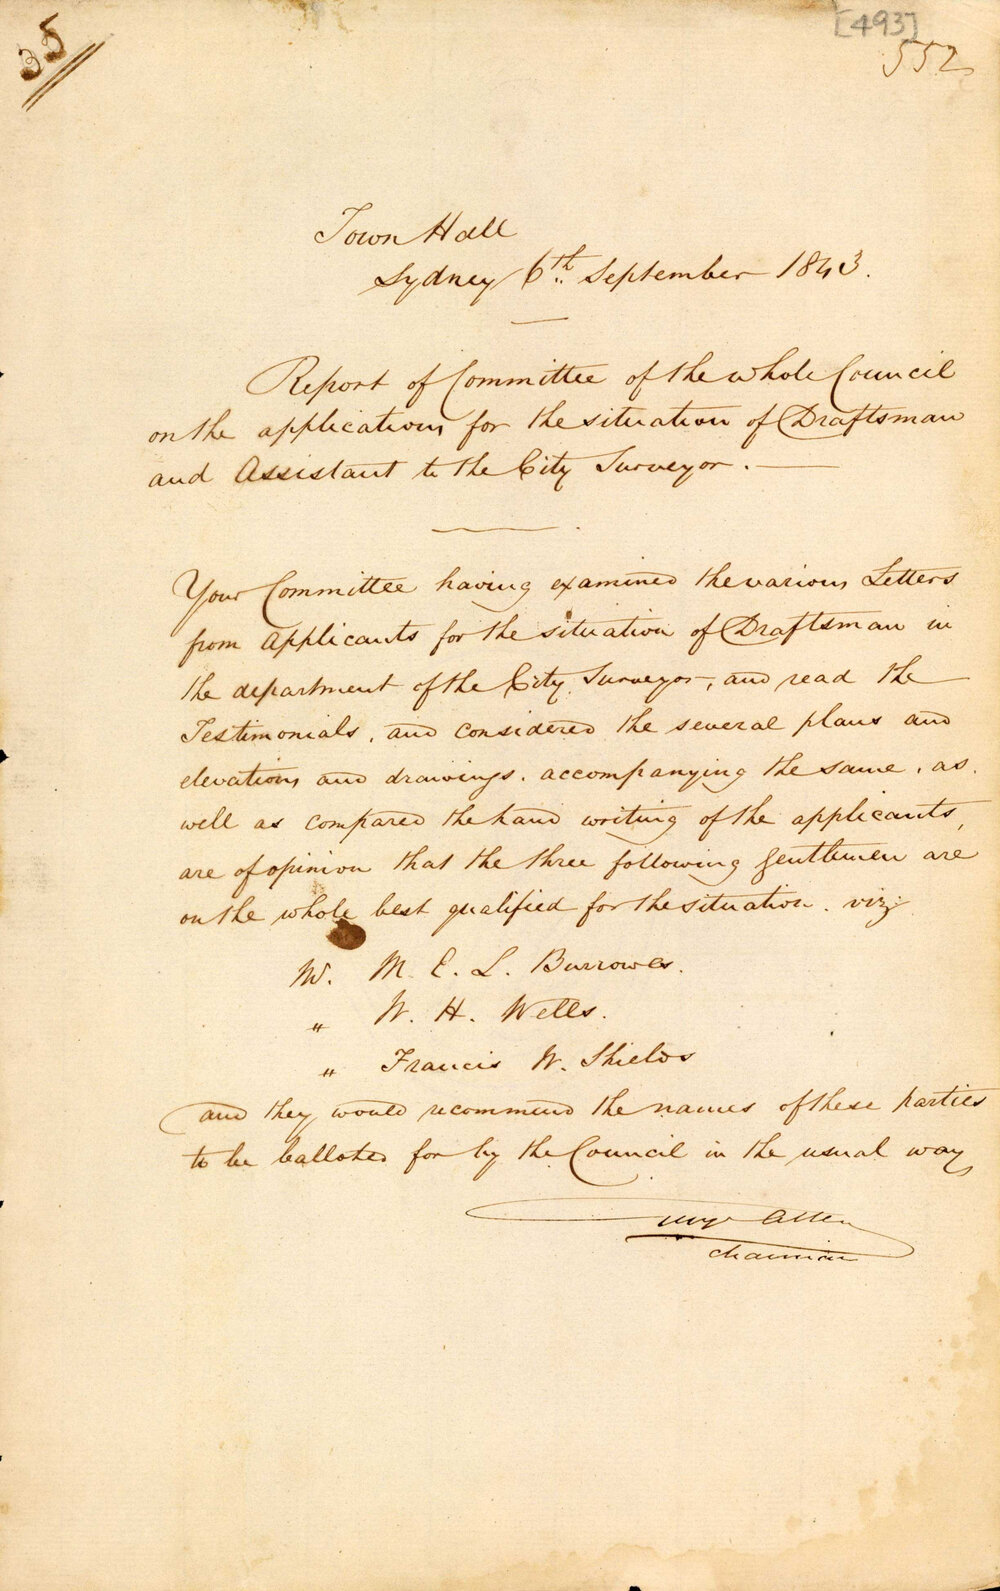 35
[493]
552
Town Hall
Sydney 6th September 1843.
Report of Committee of the whole Council
on the applications for the situation of Draftsman
and Assistant to the City Surveyor.
Your Committee having examined the various Letters
from Applicants for the situation of Draftsman in
the department of the City Surveyor, and read the
Testimonials, and considered the several plans and
elevations and drawings, accompanying the same, as
well as compared the hand writing of the applicants,
are of opinion that the three following Gentlemen are
on the whole best qualified for the situation. viz
M. M. E. L. Burrowes.
" W. H. Wells.
" Francis W. Shields
and they would recommend the names of these parties
to be balloted for by the Council in the usual way
Allen
Chairman